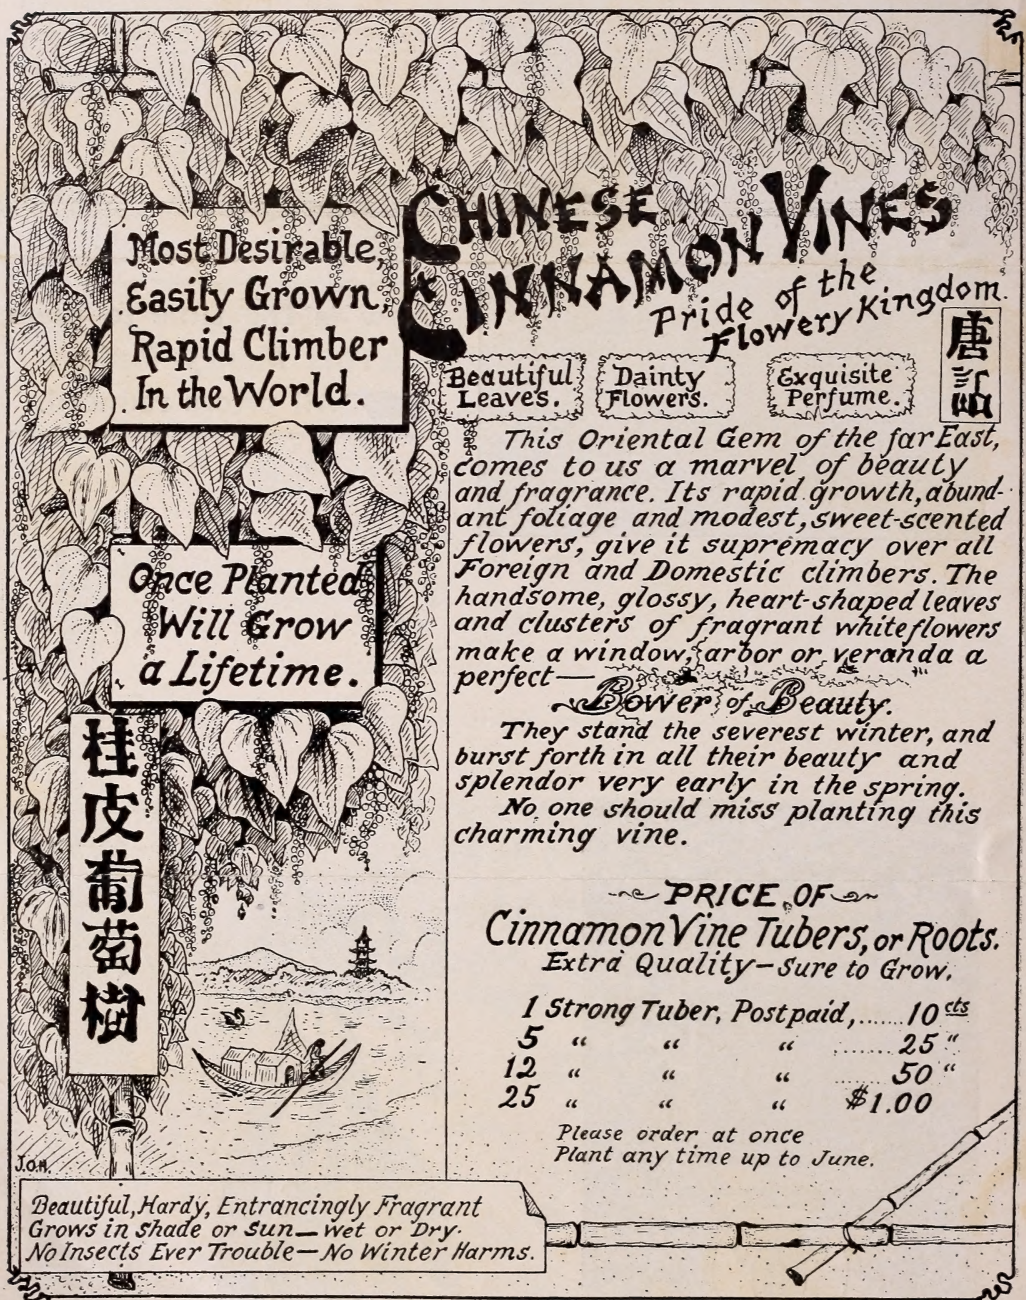 CHINESE
CINNAMON VINES
Pride of the
Flowery Kingdom.
Most Desirable,
Easily Grown,
Rapid Climber
In the World.
Beautiful
Leaves.
Dainty
Flowers.
Exquisite
Perfume.
唐
This Oriental Gem of the far East,
comes to us a marvel of beauty
and fragrance. Its rapid growth, abund-
ant foliage and modest, sweet-scented
flowers, give it supremacy over all
Foreign and Domestic climbers. The
handsome, glossy, heart-shaped leaves
and clusters of fragrant white flowers
make a window, arbor or veranda a
perfect—
Bower of Beauty.
They stand the severest winter, and
burst forth in all their beauty and
splendor very early in the spring.
No one should miss planting this
charming vine.
Once Planted
Will Grow
a Lifetime.
桂皮葡萄樹
PRICE OF
Cinnamon Vine Tubers, or Roots.
Extra Quality—Sure to Grow.
1 Strong Tuber, Postpaid,......10 cts
5 “ “ “ ........25 “
12 “ “ “ .....50 “
25 “ “ “ $1.00
Please order at once
Plant any time up to June.
J.O.H.
Beautiful, Hardy, Entrancingly Fragrant
Grows in Shade or Sun—Wet or Dry.
No Insects Ever Trouble—No Winter Harms.